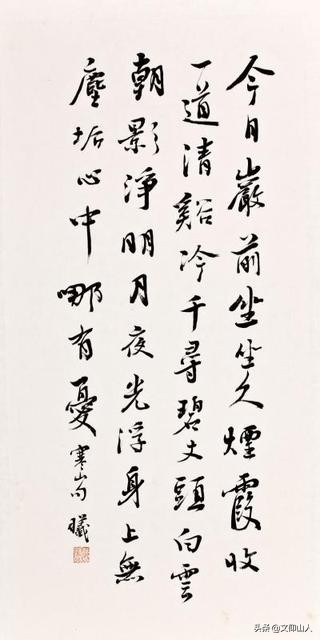 今日巖前坐坐久煙霞收
一道清谿冷千尋碧丈頭白雲
朝影淨明月夜光浮身上無
塵垢心中哪有憂 寒山句 曦
头条 @文仰山人